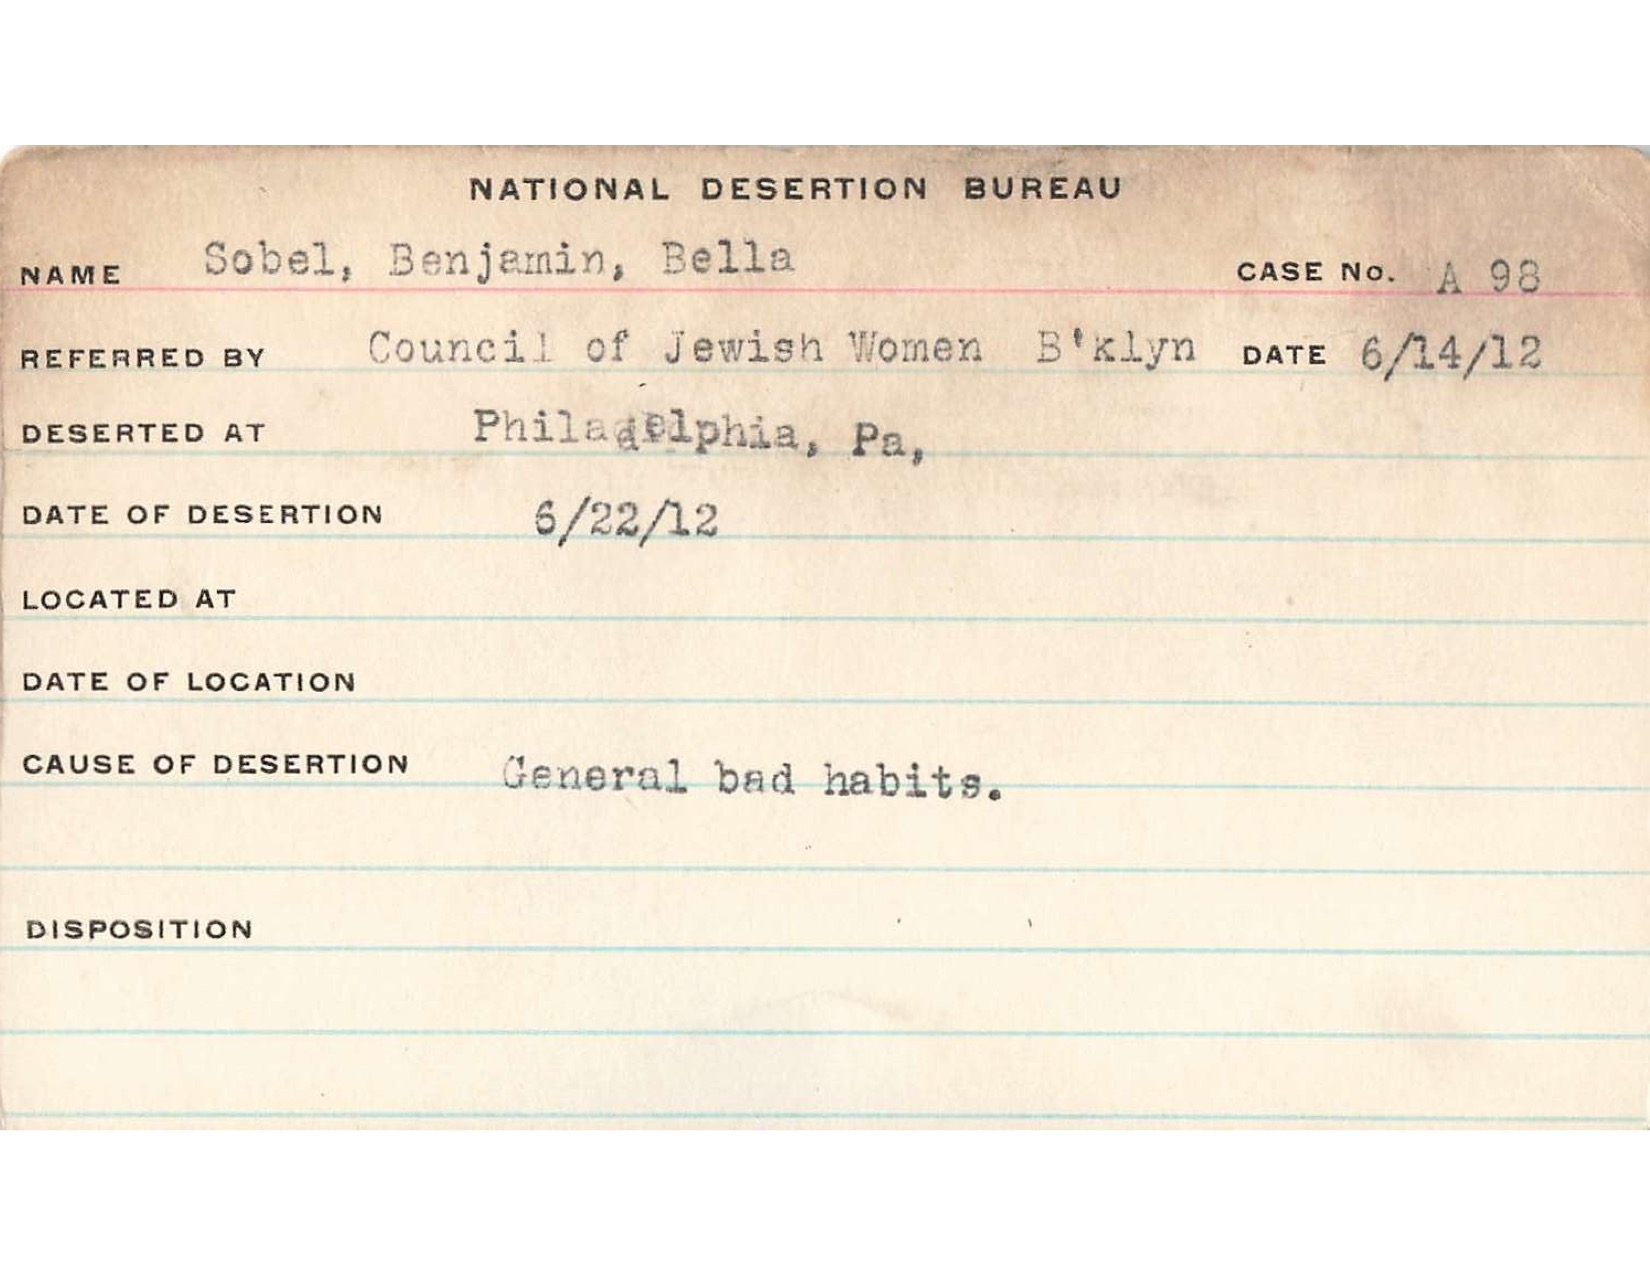 NATIONAL DESERTION BUREAU
NAME Sobel, Benjamin, Bella CASE No. A 98
REFERRED BY Council of Jewish Women B'klyn DATE 6/14/12
DESERTED AT Philadelphia, Pa,
DATE OF DESERTION 6/22/12
LOCATED AT
DATE OF LOCATION
CAUSE OF DESERTION General bad habits.
DISPOSITION